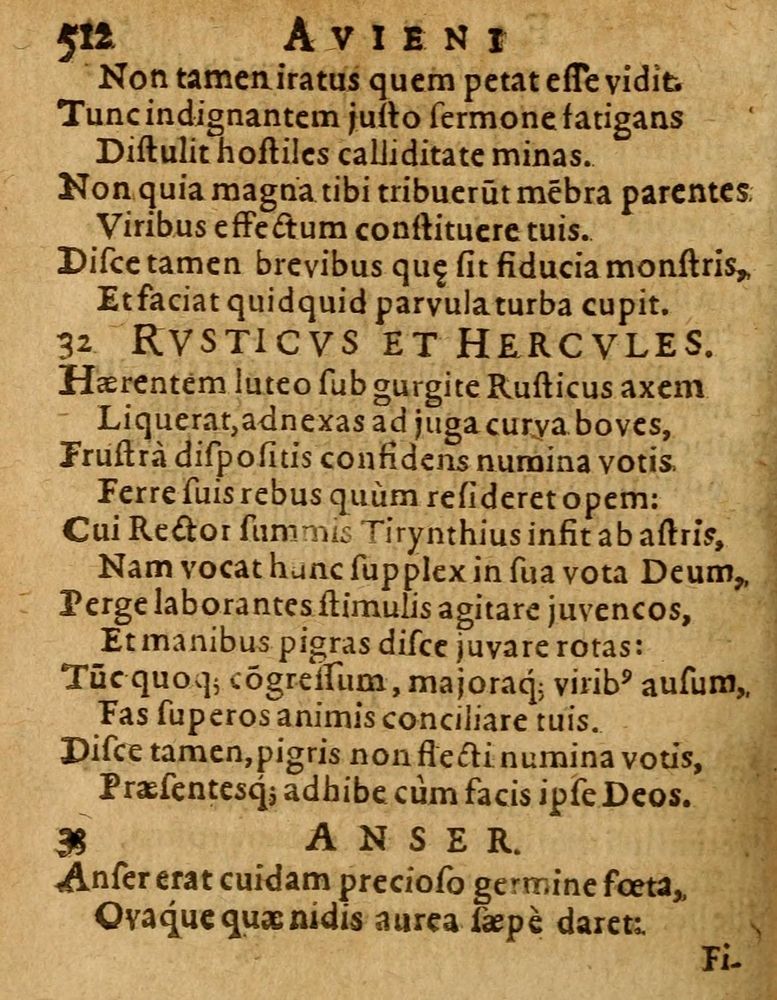 512 AVIENI
Non tamen iratus quem petat eſſe vidit.
Tunc indignantem juſto ſermone fatigans
Diſtulit hoſtiles calliditate minas.
Non quia magna tibi tribuerūt mēbra parentes
Viribus effectum conſtituere tuis.
Diſce tamen brevibus quę ſit fiducia monſtris,
Et faciat quidquid parvula turba cupit.
32 RVSTICVS ET HERCVLES.
Hærentem luteo ſub gurgite Ruſticus axem
Liquerat, adnexas ad juga curva boves,
Fruſtrà diſpoſitis confidens numina votis
Ferre ſuis rebus quùm reſideret opem:
Cui Rector ſummis Tirynthius infit ab aſtris,
Nam vocat hunc ſupplex in ſua vota Deum,
Perge laborantes ſtimulis agitare juvencos,
Et manibus pigras diſce juvare rotas:
Tūc quoq; cōgreſſum, majoraq́; virib⁹ auſum,
Fas ſuperos animis conciliare tuis.
Diſce tamen, pigris non flecti numina votis,
Præſentesq́; adhibe cùm facis ipſe Deos.
33 ANSER.
Anſer erat cuidam precioſo germine fœta,
Ovaq́ue quæ nidis aurea ſæpè daret:
Fi-